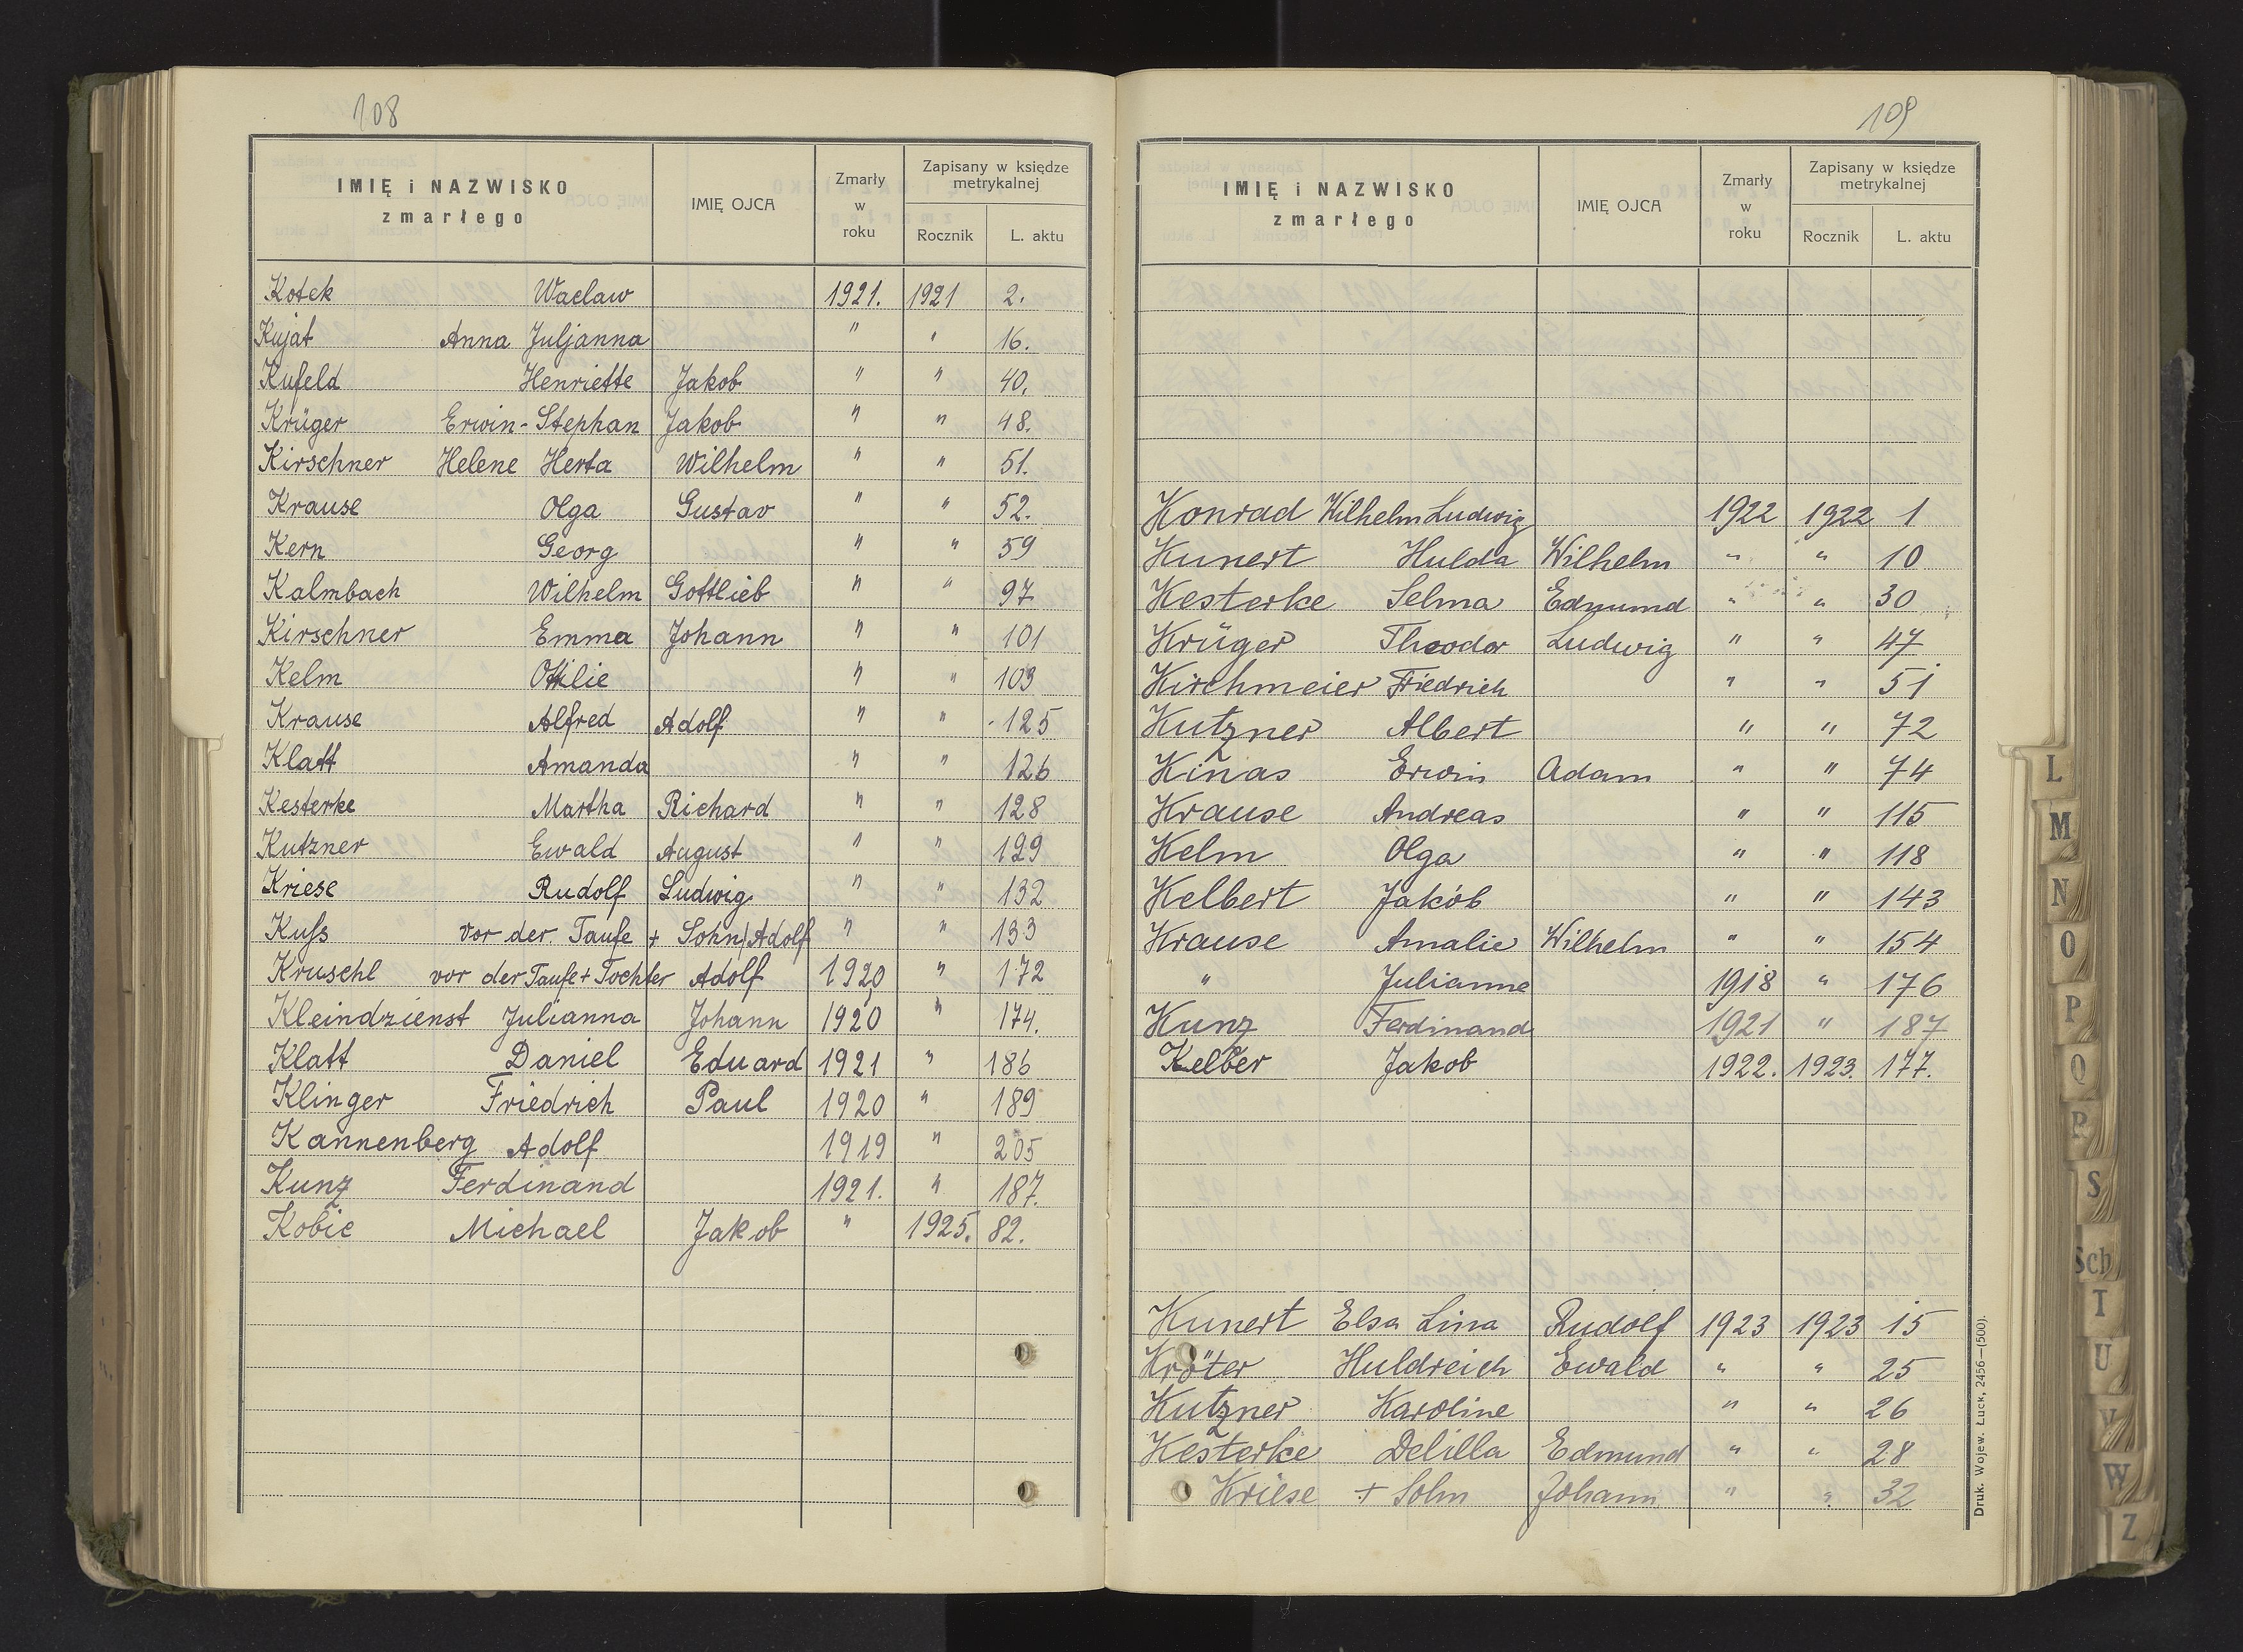 108
IMIĘ i NAZWISKO
zmarłego
IMIĘ OJCA
Zmarły
w
roku
Zapisany w księdze
metrykalnej
Rocznik
L. aktu
Kotek Wacław 1921. 1921 2.
Kujat Anna Juljanna " " 16.
Kufeld Henriette Jakob " " 40.
Krüger Erwin-Stephan Jakob " " 48.
Kirschner Helene Herta Wilhelm " " 51.
Krause Olga Gustav " " 52.
Kern Georg " " 59
Kalmbach Wilhelm Gottlieb " " 97
Kirschner Emma Johann " " 101
Kelm Ottilie " " 103
Krause Alfred Adolf " " 125
Klatt Amanda " " 126
Kesterke Martha Richard " " 128
Kutzner Ewald August " " 129
Kriese Rudolf Ludwig " " 132
Kuſs vor der Taufe + Sohn/Adolf " " 133
Kruschl vor der Taufe + Tochter Adolf 1920 " 172
Kleindzienst Julianna Johann 1920 " 174.
Klatt Daniel Eduard 1921 " 186
Klinger Friedrich Paul 1920 " 189
Kannenberg Adolf 1919 " 205
Kunz Ferdinand 1921. " 187.
Kobie Michael Jakob " 1925. 82.
109
IMIĘ i NAZWISKO
zmarłego
IMIĘ OJCA
Zmarły
w
roku
Zapisany w księdze
metrykalnej
Rocznik
L. aktu
Konrad Wilhelm Ludwig 1922 1922 1
Kunert Hulda Wilhelm " " 10
Kesterke Selma Edmund " " 30
Krüger Theodor Ludwig " " 47
Kirchmeier Friedrich " " 51
Kutzner Albert " " 72
Kinas Erwin Adam " " 74
Krause Andreas " " 115
Kelm Olga " " 118
Kelbert Jakób " " 143
Krause Amalie Wilhelm " " 154
" Julianne 1918 " 176
Kunz Ferdinand 1921 " 187
Kelber Jakob 1922. 1923. 177.
Kunert Elsa Lina Rudolf 1923 1923 15
Kröter Huldreich Ewald " " 25
Kutzner Karoline " " 26
Kesterke Delilla Edmund " " 28
Kriese + Sohn Johann " " 32
Druk. Wojew. Łuck, 2456—(500).
L
M
N
O
P
Q
R
S
Sch
T
U
V
W
Z